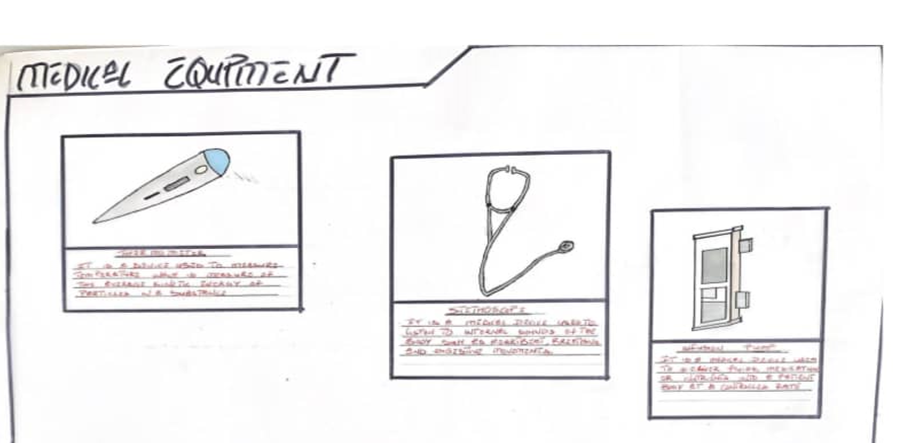 MEDICAL EQUPMENT
THERMOMETER
IT IS A DEVICE USED TO MEASURE
TEMPERATURE WHICH IS MEASURE OF
THE AVERAGE KINETIC ENERGY OF
PARTICLES IN A SUBSTANCE
STETHOSCOPE
IT IS A MEDICAL DEVICE USED TO
LISTEN TO INTERNAL SOUNDS OF THE
BODY SUCH AS HEARTBEAT, BREATHING
AND INTESTINE MOVEMENTS.
INFUSION PUMP
IT IS A MEDICAL DEVICE USED
TO DELIVER FLUIDS, MEDICATION
OR NUTRIENTS INTO A PATIENT
BODY AT A CONTROLLED RATE